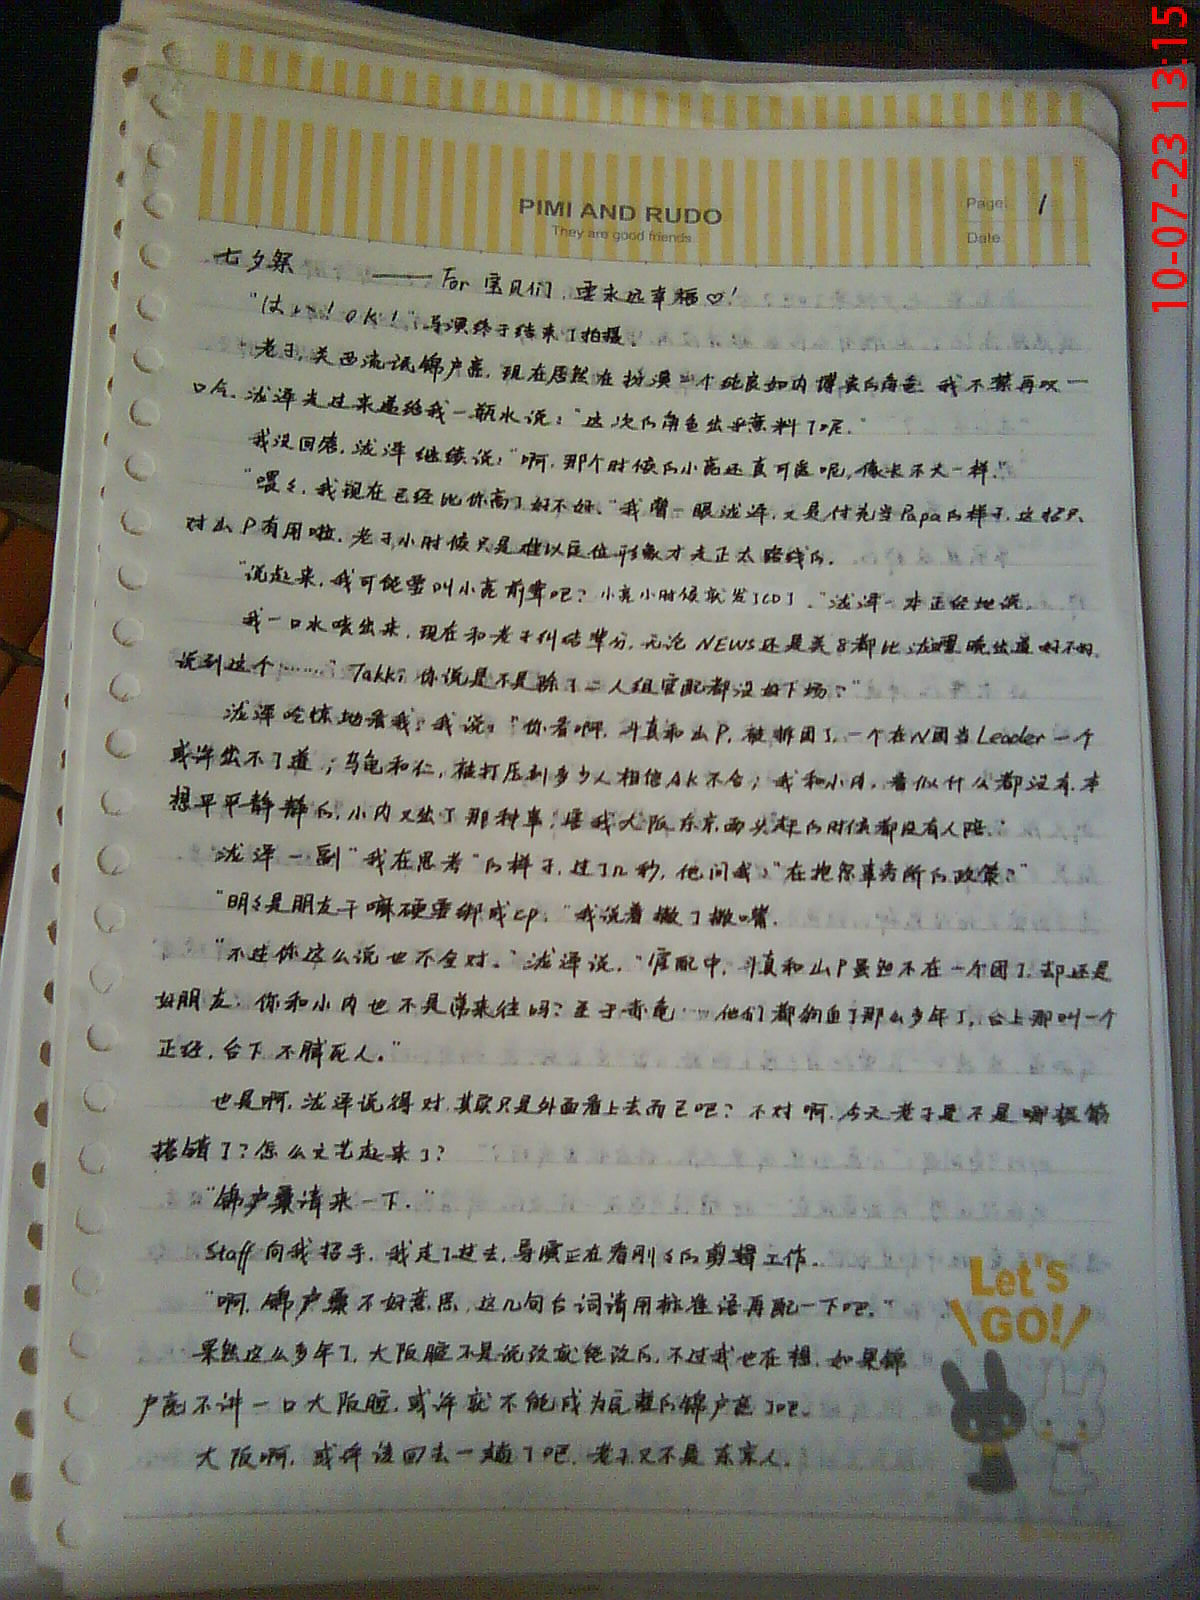 10-07-23 13:15
PIMI AND RUDO
They are good friends
Page: 1
Date:
七夕祭 —— For 宝贝们,要永远幸福♡!
"はい!OK!"导演终于结束了拍摄。
老子,关西流氓锦户亮,现在居然在扮演一个纯良如内博贵的角色,我不禁再叹一
口气。泷泽走过来递给我一瓶水说:"这次的角色出乎意料了呢。"
我没回答,泷泽继续说:"啊,那个时候的小亮还真可爱呢,像长不大一样。"
"喂々,我现在已经比你高了好不好。"我瞥一眼泷泽,又是付充当Papa的样子,这招只
对山P有用啦,老子小时候只是难以定位形象才走正太路线的。
"说起来,我可能要叫小亮前辈吧?小亮小时候就发了CD了。"泷泽一本正经地说。
我一口水喷出来,现在和老子纠结辈分,无论NEWS还是关8都比泷翼晚出道好不好。
说到这个……"Takki,你说是不是除了二人组官配都没好下场?"
泷泽吃惊地看我,我说:"你看啊,斗真和山P,被拆团了,一个在N团当Leader一个
或许出不了道;乌龟和仁,被打压到多少人相信AK不合;我和小内,看似什么都没有,本
想平平静静的,小内又出了那种事,害我大阪东京两头赶的时候都没有人陪。"
泷泽一副"我在思考"的样子,过了几秒,他问我:"在抱怨事务所的政策?"
"明々是朋友干嘛硬要绑成cp。"我说着撇了撇嘴。
"不过你这么说也不全对。"泷泽说,"官配中,斗真和山P虽然不在一个团了,却还是
好朋友;你和小内也不是常来往吗?至于赤龟……他们都狗血了那么多年了,台上那叫一个
正经,台下不腻死人。"
也是啊,泷泽说得对,其实只是外面看上去而已吧?不对啊,今天老子是不是哪根筋
搭错了?怎么文艺起来了?
"锦户桑请来一下。"
Staff向我招手,我走了过去,导演正在看刚々的剪辑工作。
"啊,锦户桑不好意思,这几句台词请用标准语再配一下吧。"
果然这么多年了,大阪腔不是说改就能改的,不过我也在想,如果锦
户亮不讲一口大阪腔,或许就不能成为完整的锦户亮了吧。
大阪啊,或许该回去一趟了吧,老子又不是东京人。
Let's
GO!